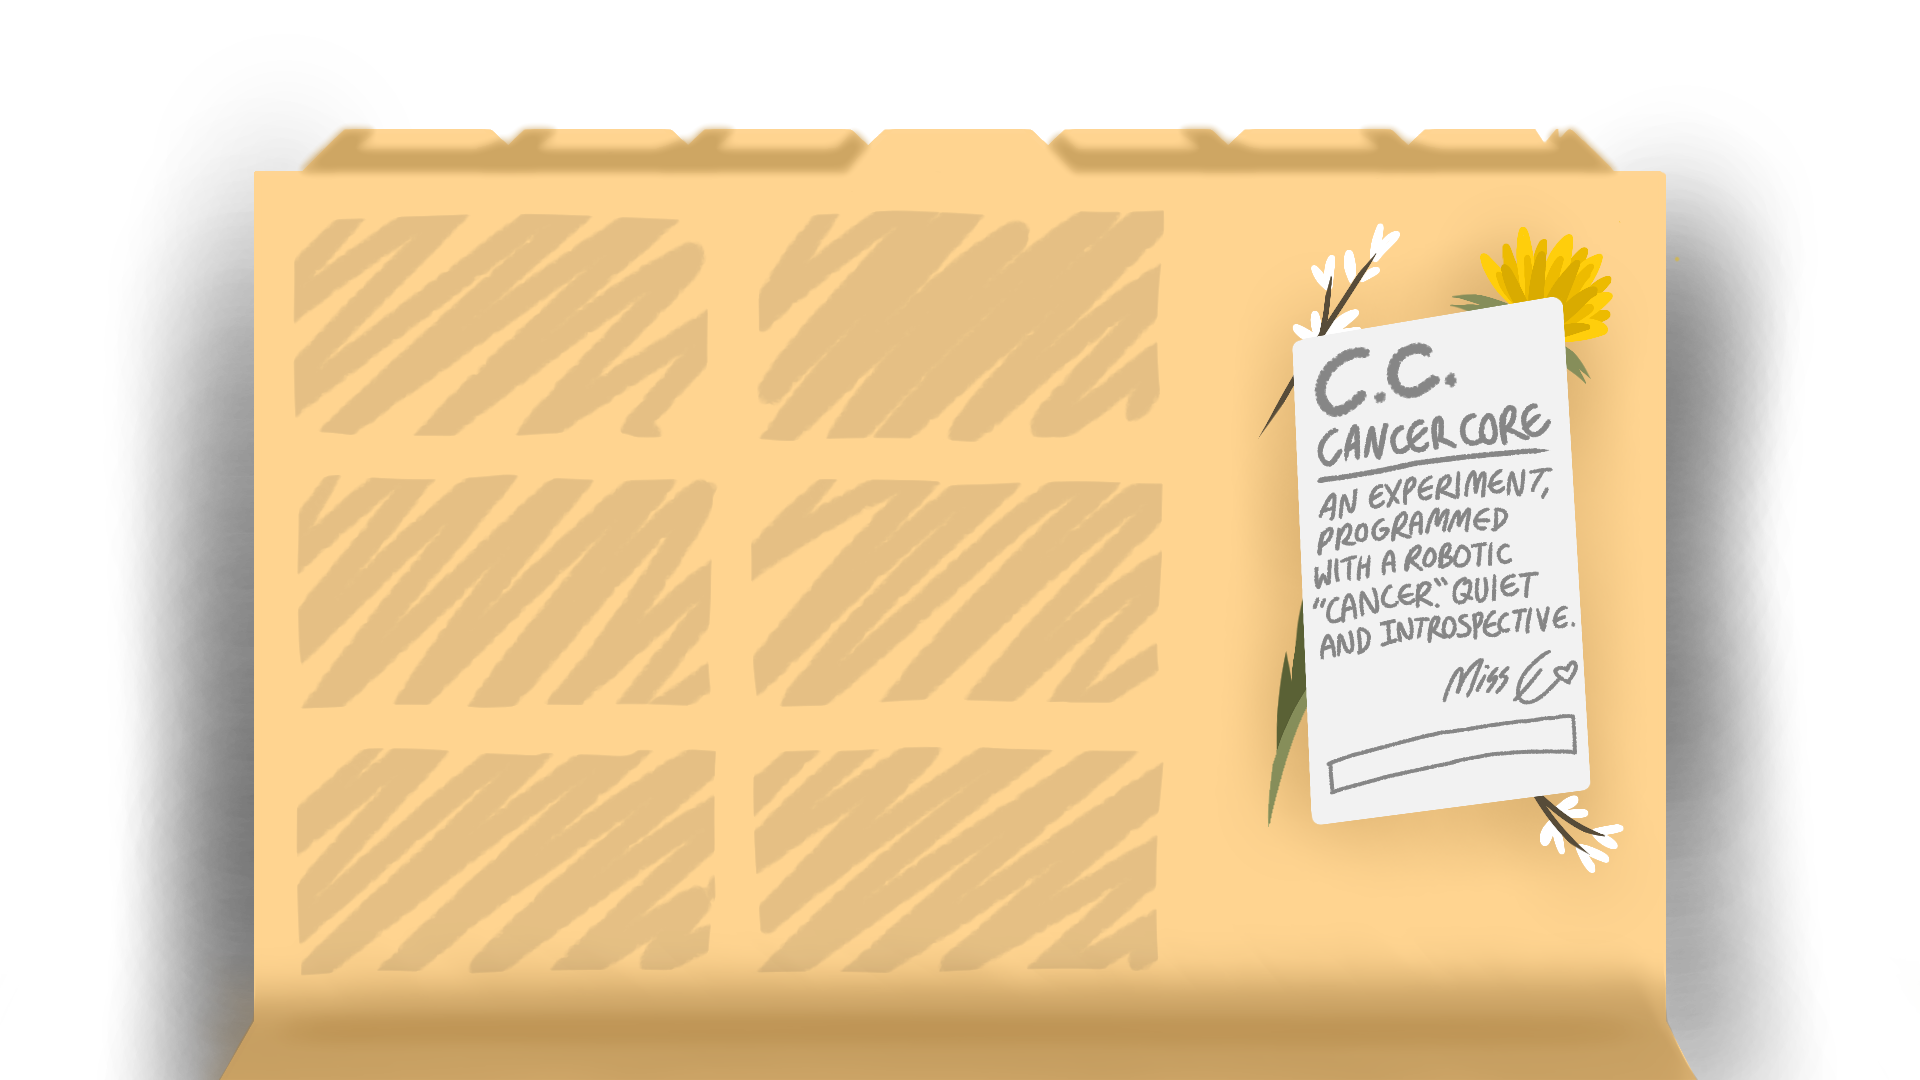 C.C.
CANCER CORE
AN EXPERIMENT,
PROGRAMMED
WITH A ROBOTIC
"CANCER." QUIET
AND INTROSPECTIVE.
Miss E